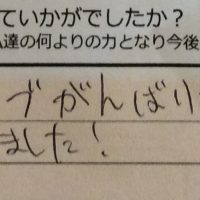 ていかがでしたか？
達の何よりの力となり今後
づがんばり
ました!